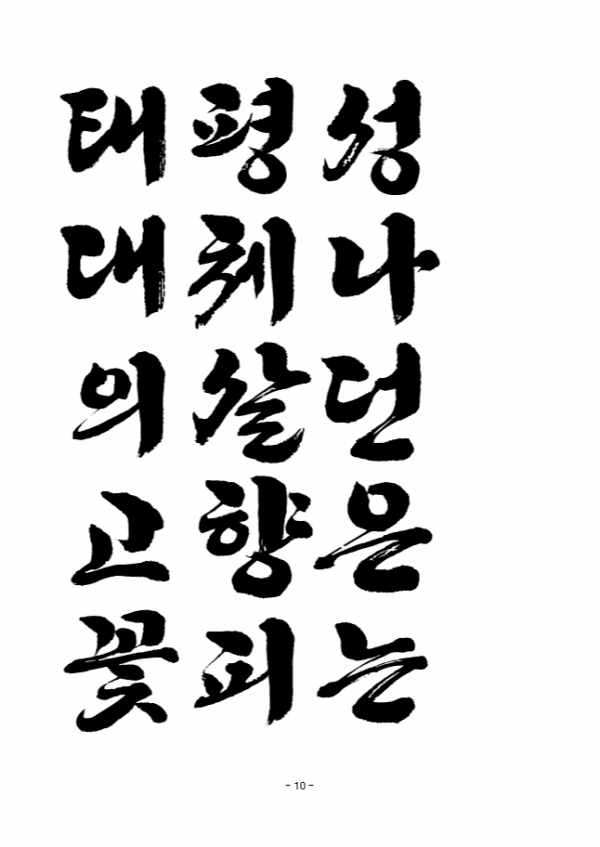 태평성
대체나
의살던
고향은
꽃피는
- 10 -